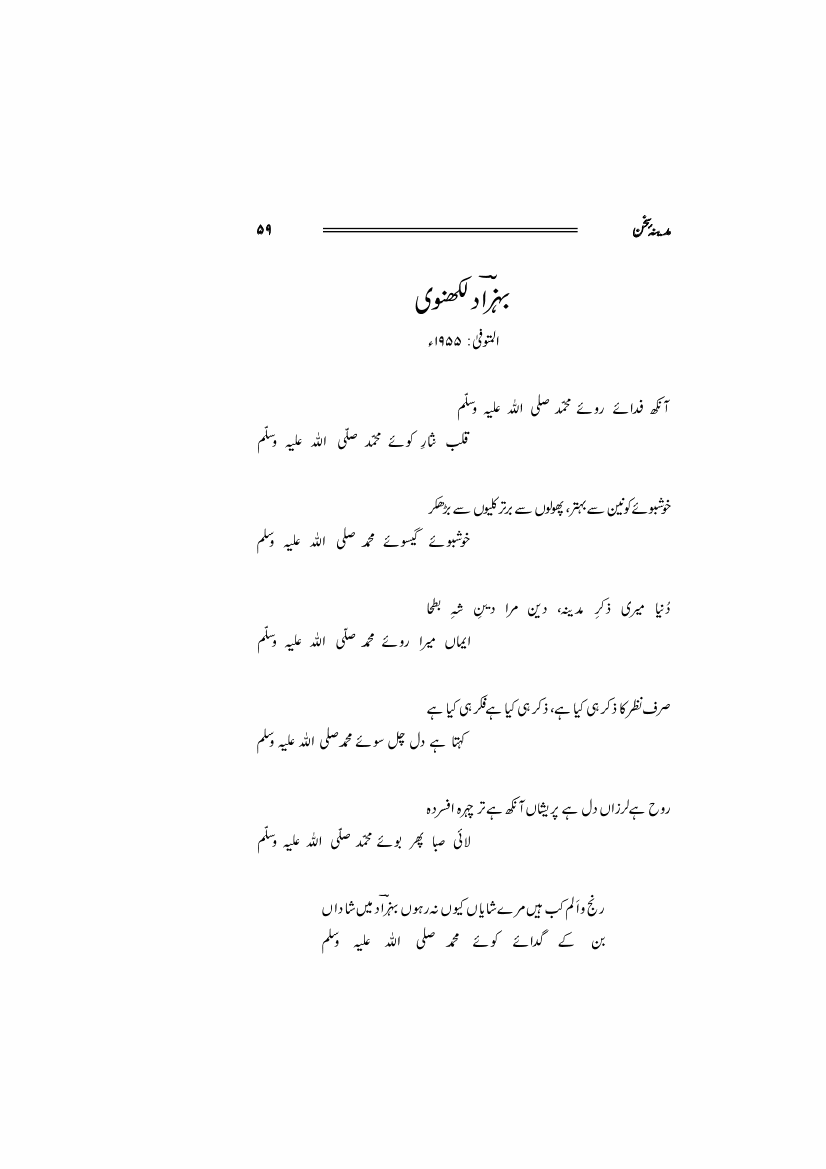 مدینہ سخن ۵۹
بہزاؔد لکھنوی
المتوفیٰ: ۱۹۵۵ء
آنکھ فدائے روئے محمّد صلی اللہ علیہ وسلّم
قلب نثارِ کوئے محمّد صلّی اللہ علیہ وسلّم
خوشبوئے کونین سے بہتر، پھولوں سے برتر کلیوں سے بڑھکر
خوشبوئے گیسوئے محمد صلی اللہ علیہ وسلم
دُنیا میری ذکرِ مدینہ، دین مرا دینِ شہِ بطحا
ایماں میرا روئے محمد صلّی اللہ علیہ وسلّم
صرف نظر کا ذکر ہی کیا ہے، ذکر ہی کیا ہے فکر ہی کیا ہے
کہتا ہے دل چل سوئے محمد صلی اللہ علیہ وسلم
روح ہے لرزاں دل ہے پریشاں آنکھ ہے تر چہرہ افسردہ
لائی صبا پھر بوئے محمّد صلّی اللہ علیہ وسلّم
رنج و اَلم کب ہیں مرے شایاں کیوں نہ رہوں بہزاؔد میں شاداں
بن کے گدائے کوئے محمد صلی اللہ علیہ وسلم